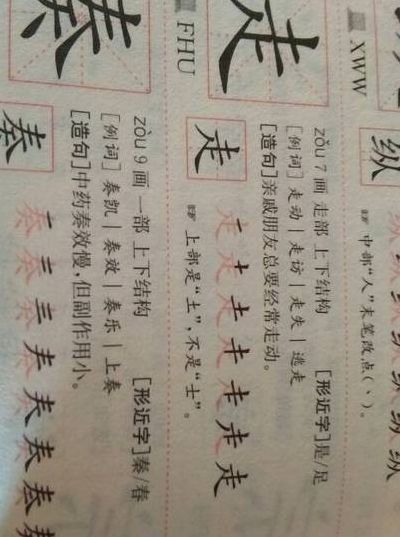 XWW
纵
中部“人”末笔改点(丶)。
走
zǒu 7画 走部 上下结构 [形近字]是/足
[例词]走动|走访|走失|逃走
[造句]亲戚朋友总要经常走动。
FHU
走
上部是“土”,不是“士”。
奏
zòu 9画 一部 上下结构 [形近字]秦/春
[例词]奏凯|奏效|奏乐|上奏
[造句]中药奏效慢,但副作用小。
奏